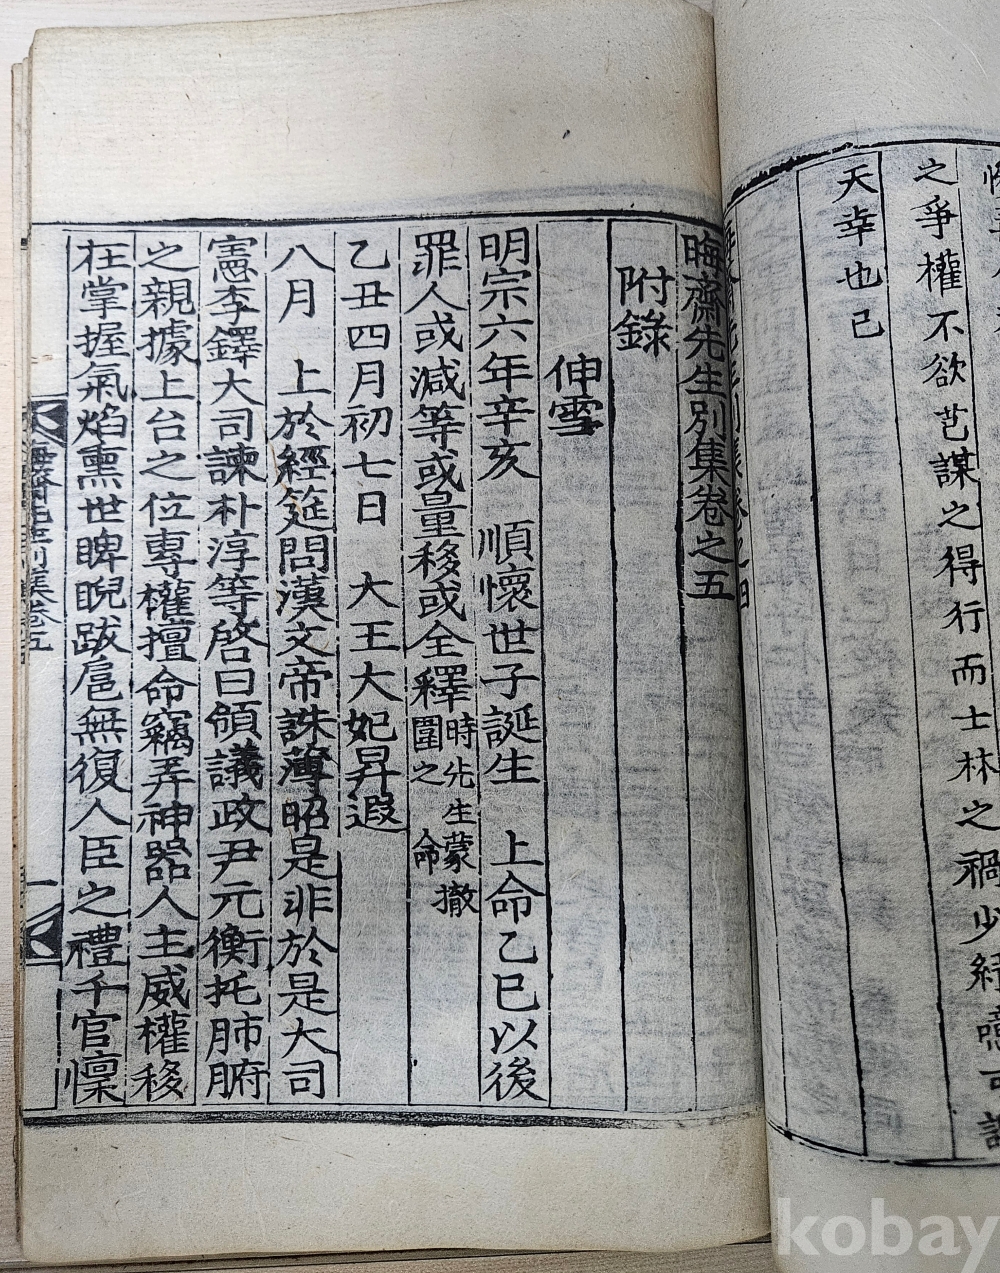 之爭權不欲芑謀之得行而士林之禍少紓
天幸也已
晦齋先生別集卷之五
附錄
伸雪
明宗六年辛亥 順懷世子誕生 上命乙巳以後
罪人或減等或量移或全釋時先生蒙撤圍之命
乙丑四月初七日 大王大妃昇遐
八月 上於經筵問漢文帝誅薄昭是非於是大司
憲李鐸大司諫朴淳等啓曰領議政尹元衡托肺腑
之親據上台之位專權擅命竊弄神器人主威權移
在掌握氣焰熏世睥睨跋扈無復人臣之禮千官懍
晦齋先生別集卷五
一
kobay